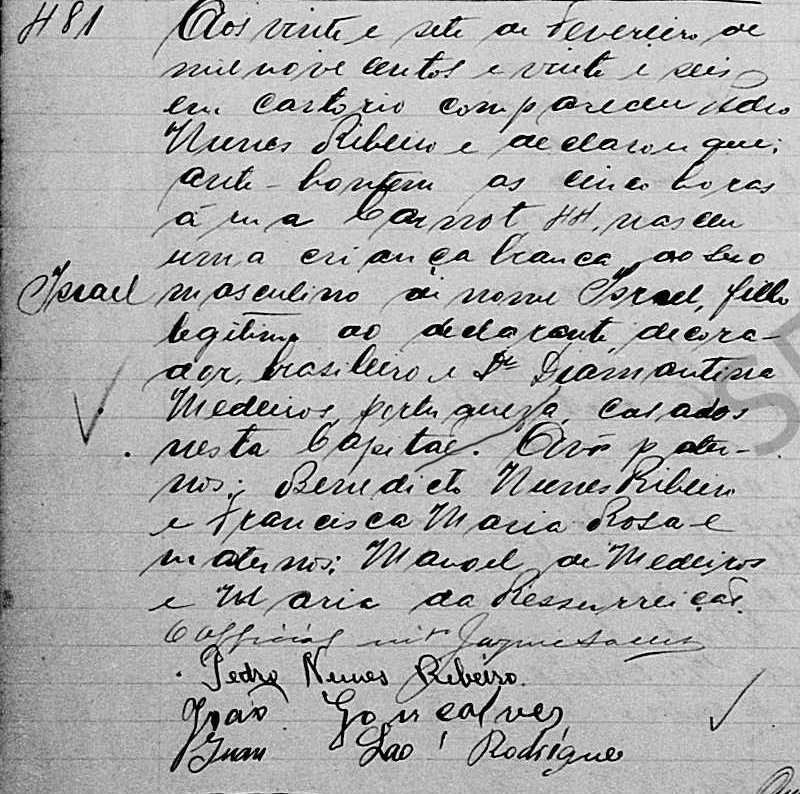 481 Aos vinte e sete de Fevereiro de
mil nove centos e vinte e seis
em cartorio compareceu Pedro
Nunes Ribeiro e declarou que:
ante-hontem as cinco horas
á rua Carnot 44, nasceu
uma criança branca, do sexo
Israel masculino de nome Israel, filho
legitimo do declarante, decora-
dor, brasileiro e De Diamantina
Medeiros, portugueza, casados
nesta Capital. Avós pater-
nos: Benedicto Nunes Ribeiro
e Francisca Maria Rosa e
maternos: Manoel de Medeiros
e Maria da Ressurreição.
O official
Pedro Nunes Ribeiro.
João Gonçalves
Juan Rodrigues
SE